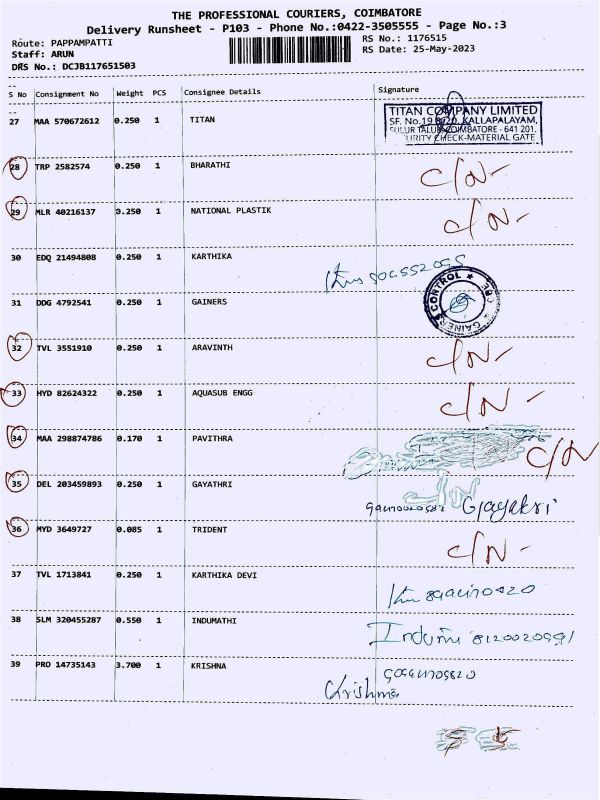 THE PROFESSIONAL COURIERS, COIMBATORE
Delivery Runsheet - P103 - Phone No.:0422-3505555 - Page No.:3
Route: PAPPAMPATTI
RS No.: 1176515
Staff: ARUN
RS Date: 25-May-2023
DRS No.: DCJB117651503
S No Consignment No Weight PCS Consignee Details Signature
27 MAA 570672612 0.250 1 TITAN
TITAN COMPANY LIMITED
KALLAPALAYAM,
COIMBATORE - 641 201.
CHECK-MATERIAL GATE
28 TRP 2582574 0.250 1 BHARATHI C/N-
29 MLR 40216137 3.250 1 NATIONAL PLASTIK C/N-
30 EDQ 21494808 0.250 1 KARTHIKA
31 DDG 4792541 0.250 1 GAINERS
GAINERS CBE CONTROL
32 TVL 3551910 0.250 1 ARAVINTH C/N-
33 HYD 82624322 0.250 1 AQUASUB ENGG C/N-
34 MAA 298874786 0.170 1 PAVITHRA C/N
35 DEL 203459893 0.250 1 GAYATHRI C/N
36 MYD 3649727 0.085 1 TRIDENT C/N-
37 TVL 1713841 0.250 1 KARTHIKA DEVI
38 SLM 320455287 0.550 1 INDUMATHI
39 PRO 14735143 3.700 1 KRISHNA
Krishna